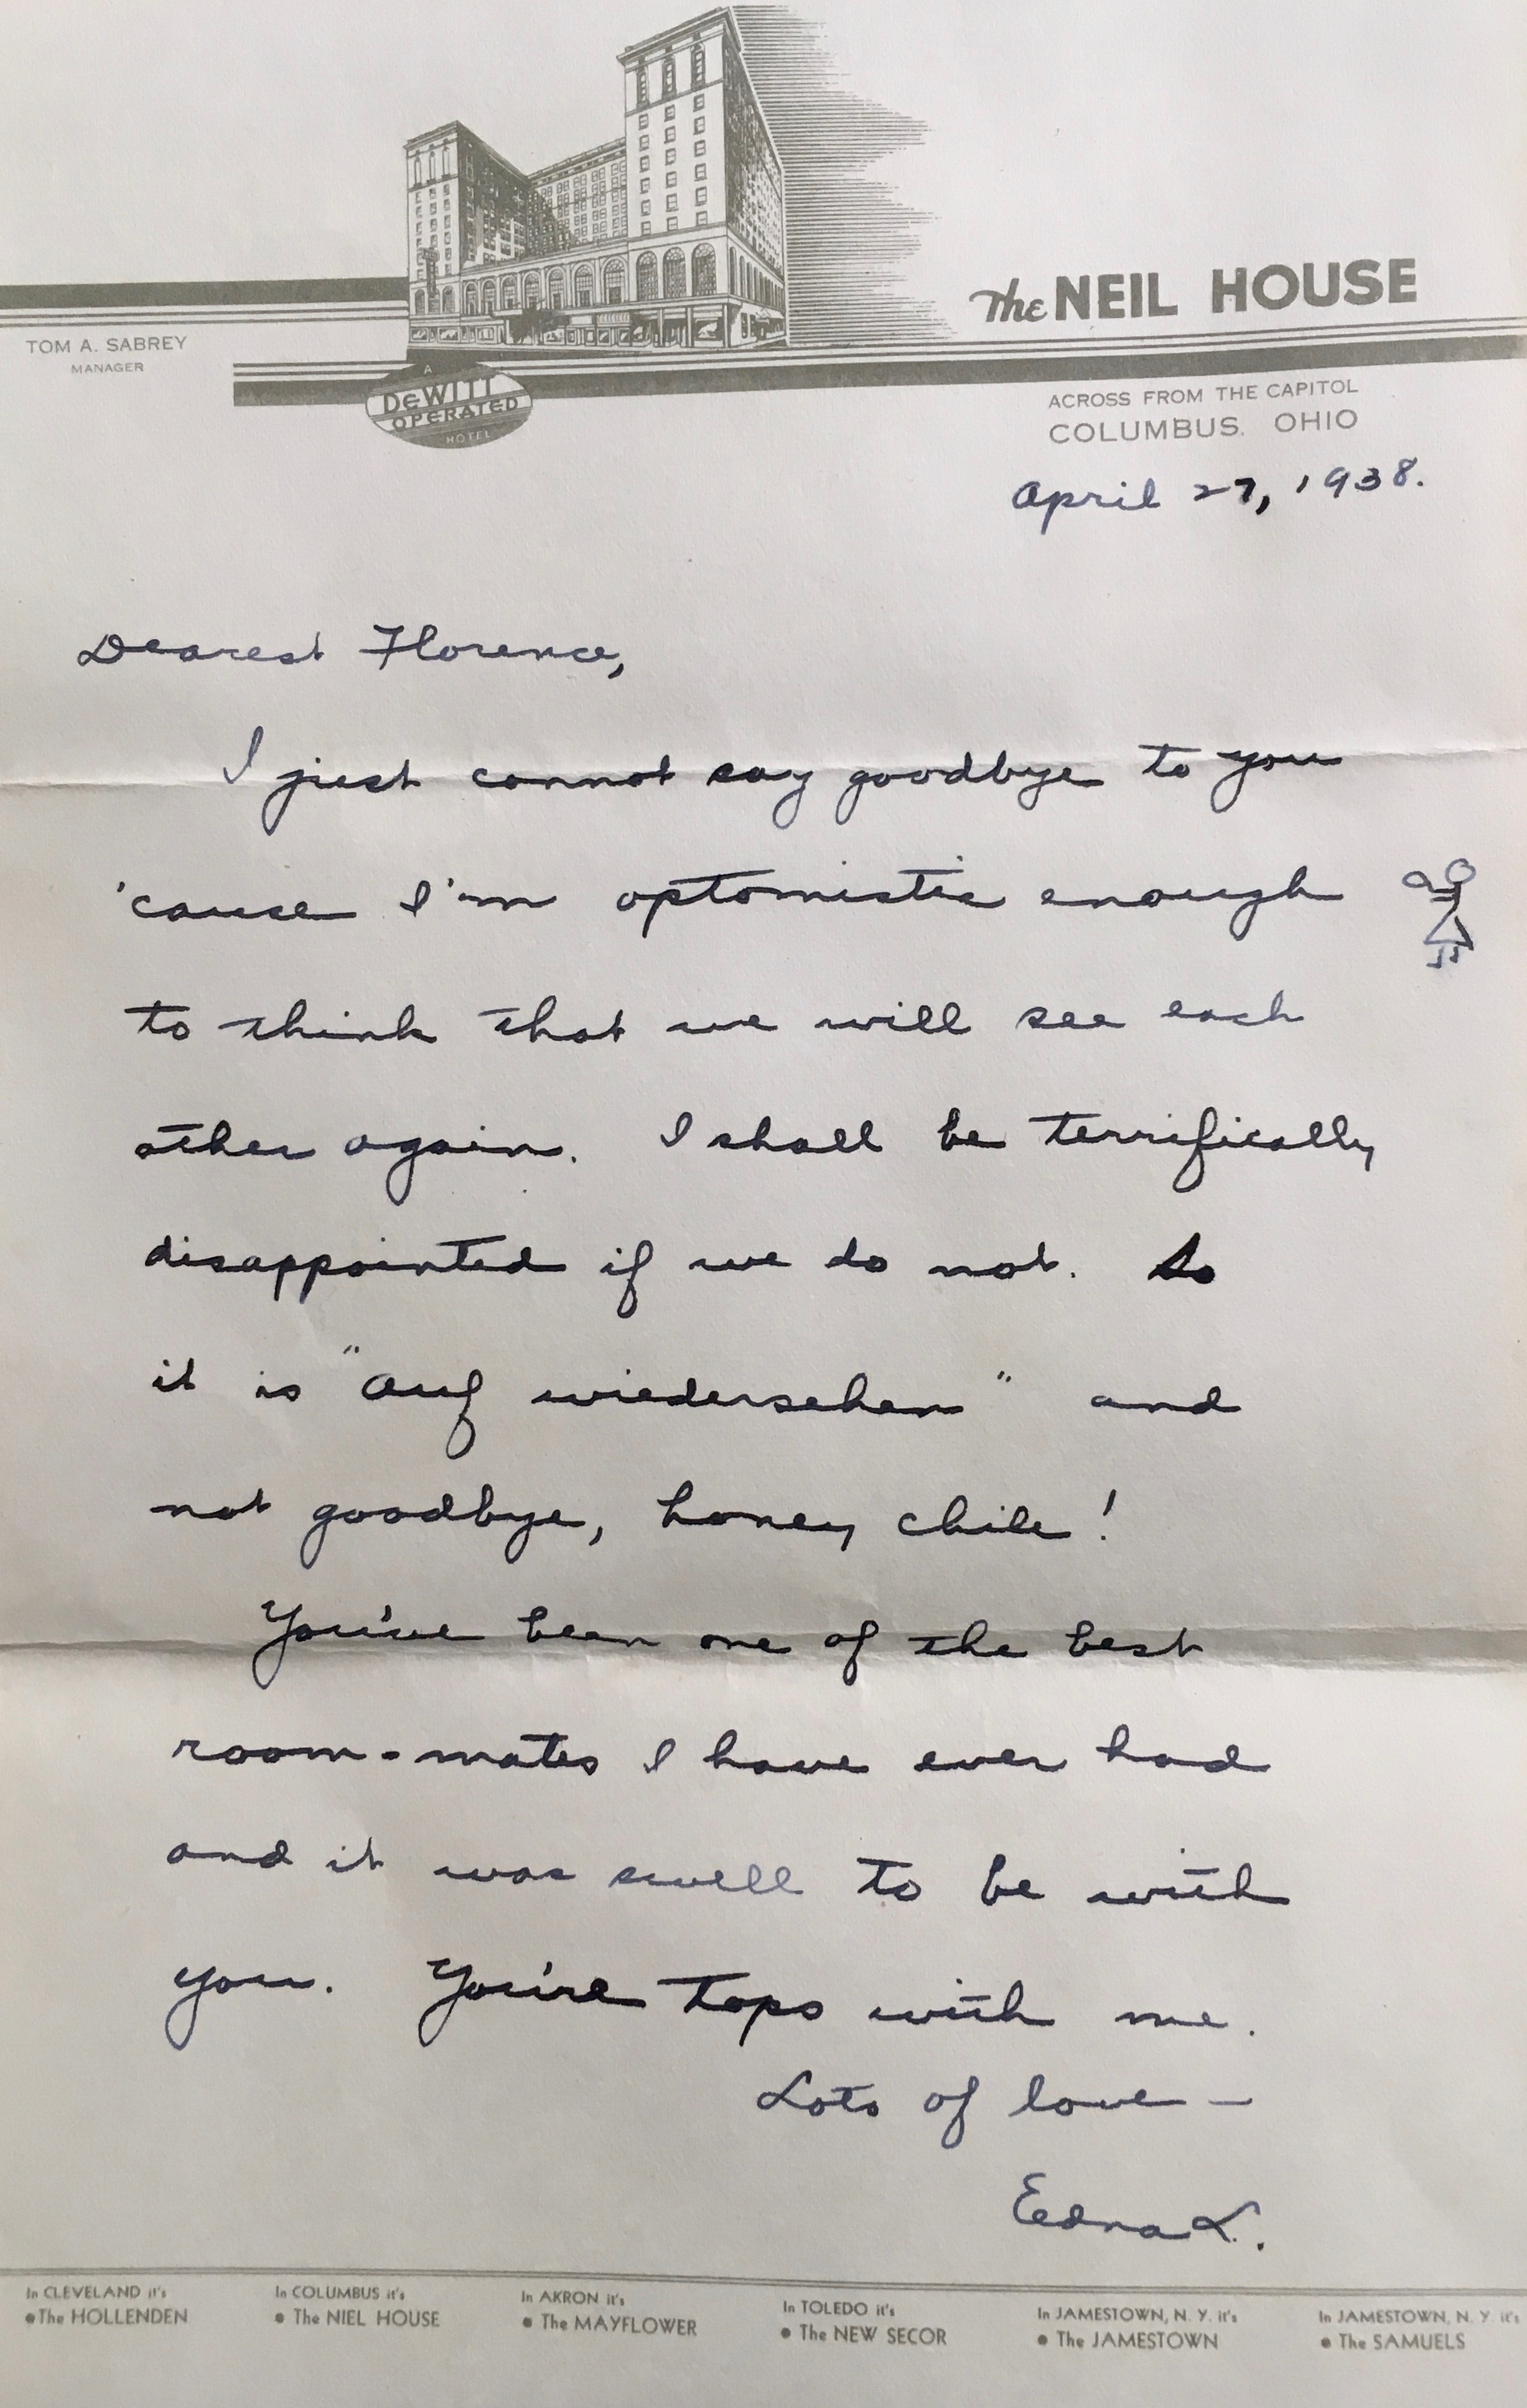 The NEIL HOUSE
TOM A. SABREY
MANAGER
A
DeWITT
OPERATED
HOTEL
ACROSS FROM THE CAPITOL
COLUMBUS, OHIO
April 27, 1938.
Dearest Florence,
I just cannot say goodbye to you
'cause I'm optomistic enough
to think that we will see each
other again. I shall be terrifically
disappointed if we do not. So
it is "auf wiedersehen" and
not goodbye, honey chile!
You've been one of the best
room-mates I have ever had
and it was swell to be with
you. You're tops with me.
Lots of love —
Edna L.
In CLEVELAND it's
• The HOLLENDEN
In COLUMBUS it's
• The NIEL HOUSE
In AKRON it's
• The MAYFLOWER
In TOLEDO it's
• The NEW SECOR
In JAMESTOWN, N. Y. it's
• The JAMESTOWN
In JAMESTOWN, N. Y. it's
• The SAMUELS